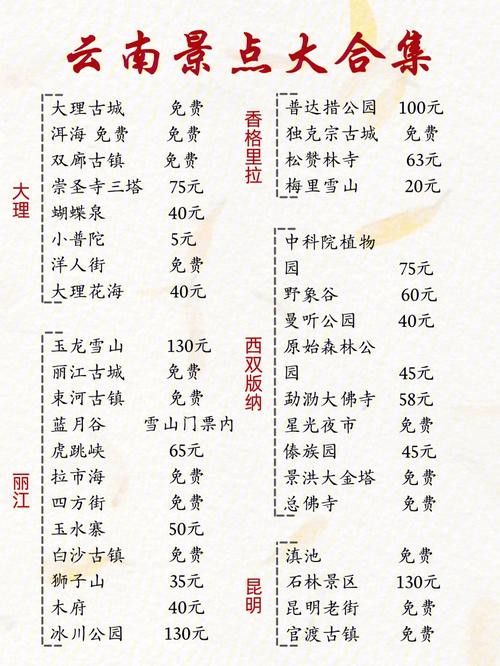 云南景点大合集
大理
大理古城 免费
洱海 免费 免费
双廊古镇 免费
崇圣寺三塔 75元
蝴蝶泉 40元
小普陀 5元
洋人街 免费
大理花海 40元
丽江
玉龙雪山 130元
丽江古城 免费
束河古镇 免费
蓝月谷 雪山门票内
虎跳峡 65元
拉市海 免费
四方街 免费
玉水寨 50元
白沙古镇 免费
狮子山 35元
木府 40元
冰川公园 130元
香格里拉
普达措公园 100元
独克宗古城 免费
松赞林寺 63元
梅里雪山 20元
西双版纳
中科院植物
园 75元
野象谷 60元
曼听公园 40元
原始森林公
园 45元
勐泐大佛寺 58元
星光夜市 免费
傣族园 45元
景洪大金塔 免费
总佛寺 免费
昆明
滇池 免费
石林景区 130元
昆明老街 免费
官渡古镇 免费